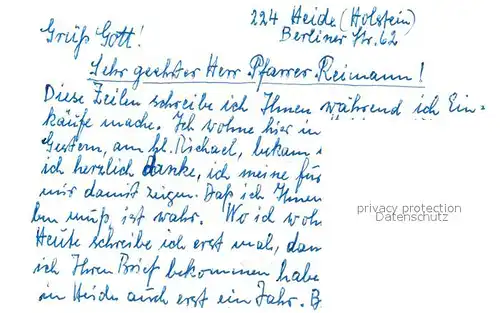 224 Heide (Holstein)
Berliner Str. 62
Grüß Gott!
Sehr geehrter Herr Pfarrer Reimann!
Diese Zeilen schreibe ich Ihnen während ich Ein-
käufe mache. Ich wohne hier in
Gestern, am hl. Michael, bekam
ich herzlich danke, ich meine für
mir damit zeigen. Daß ich Ihnen
ben muß, ist wahr. Wo ich woh
Heute schreibe ich erst mal, dan
ich Ihren Brief bekommen habe
in Heide auch erst ein Jahr. B
privacy protection
Datenschutz